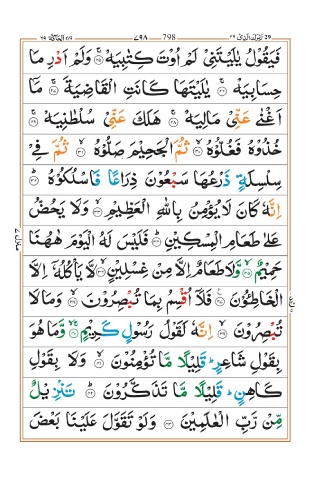 تبٰرك الذی ٢٩ 798 ٧٩٨ الحآقة ٦٩
فَيَقُوْلُ يٰلَيْتَنِيْ لَمْ اُوْتَ كِتٰبِيَهْ ۚ۝٢٥ وَلَمْ اَدْرِ مَا
حِسَابِيَهْ ۚ۝٢٦ يٰلَيْتَهَا كَانَتِ الْقَاضِيَةَ ۚ۝٢٧ مَاۤ
اَغْنٰى عَنِّيْ مَالِيَهْ ۚ۝٢٨ هَلَكَ عَنِّيْ سُلْطٰنِيَهْ ۚ۝٢٩
خُذُوْهُ فَغُلُّوْهُ ۙ۝٣٠ ثُمَّ الْجَحِيْمَ صَلُّوْهُ ۙ۝٣١ ثُمَّ فِيْ
سِلْسِلَةٍ ذَرْعُهَا سَبْعُوْنَ ذِرَاعًا فَاسْلُكُوْهُ ؕ۝٣٢
اِنَّهٗ كَانَ لَا يُؤْمِنُ بِاللّٰهِ الْعَظِيْمِ ۙ۝٣٣ وَلَا يَحُضُّ
عَلٰى طَعَامِ الْمِسْكِيْنِ ؕ۝٣٤ فَلَيْسَ لَهُ الْيَوْمَ هٰهُنَا
حَمِيْمٌ ۙ۝٣٥ وَّلَا طَعَامٌ اِلَّا مِنْ غِسْلِيْنٍ ۙ۝٣٦ لَّا يَاْكُلُهٗۤ اِلَّا
الْخَاطِـُٔوْنَ ۝٣٧ فَلَاۤ اُقْسِمُ بِمَا تُبْصِرُوْنَ ۙ۝٣٨ وَمَا لَا
تُبْصِرُوْنَ ۙ۝٣٩ اِنَّهٗ لَقَوْلُ رَسُوْلٍ كَرِيْمٍ ۙ۝٤٠ وَّمَا هُوَ
بِقَوْلِ شَاعِرٍ ؕ قَلِيْلًا مَّا تُؤْمِنُوْنَ ۙ۝٤١ وَلَا بِقَوْلِ
كَاهِنٍ ؕ قَلِيْلًا مَّا تَذَكَّرُوْنَ ؕ۝٤٢ تَنْزِيْلٌ
مِّنْ رَّبِّ الْعٰلَمِيْنَ ۝٤٣ وَلَوْ تَقَوَّلَ عَلَيْنَا بَعْضَ